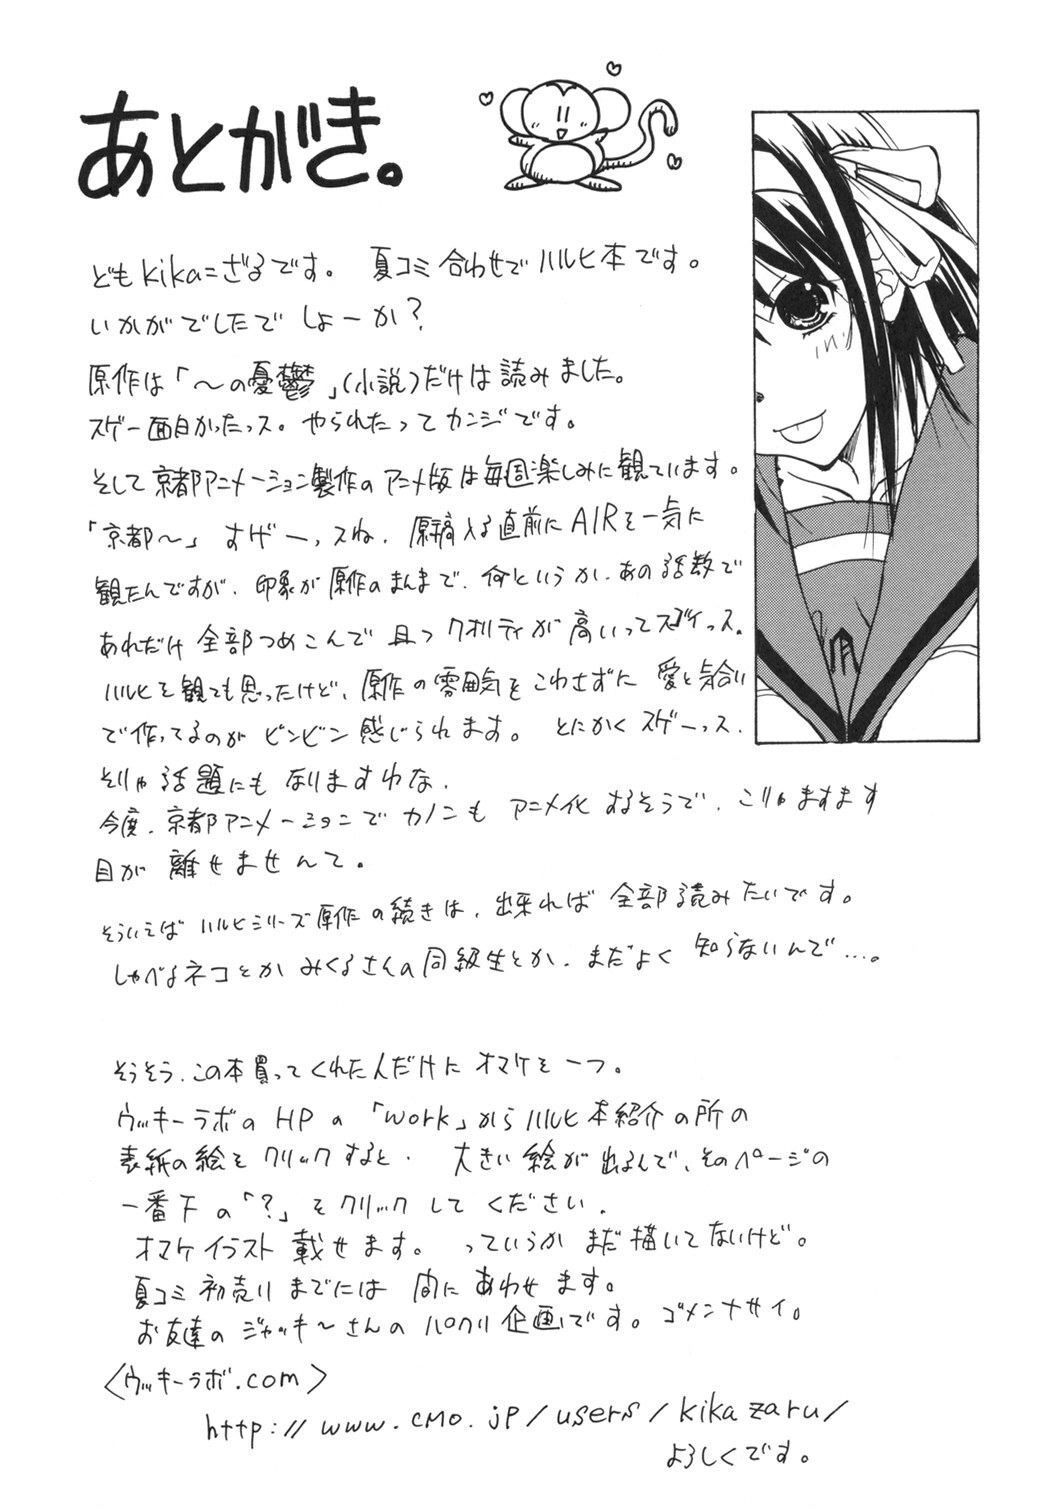 あとがき。
どもkika=ざるです。 夏コミ合わせでハルヒ本です。
いかがでしたでしょーか?
原作は「〜の憂鬱」(小説)だけは読みました。
スゲー面白かったっス。やられたってカンジです。
そして京都アニメーション製作のアニメ版は毎週楽しみに観ています。
「京都〜」すげーっスね、原稿入る直前にAIRを一気に
観たんですが、印象が原作のまんまで、何というか、あの話数で
あれだけ全部つめこんで且つクオリティが高いってスゴイっス。
ハルヒを観ても思ったけど、原作の雰囲気をこわさずに愛と気合い
で作ってるのがビンビン感じられます。 とにかくスゲーっス、
そりゃ話題にもなりますわな、
今度、京都アニメーションでカノンもアニメ化するそうで、こりゃますます
目が離せませんて。
そういえばハルヒシリーズ原作の続きは、出来れば全部読みたいです。
しゃべるネコとかみくるさんの同級生とか、まだよく知らないんで…。
そうそう、この本買ってくれた人だけにオマケを一つ。
ウッキーラボのHPの「work」からハルヒ本紹介の所の
表紙の絵をクリックすると、 大きい絵が出るんで、そのページの
一番下の「?」をクリックしてください、
オマケイラスト載せます。 っていうかまだ描いてないけど。
夏コミ初売りまでには間にあわせます。
お友達のジャッキ〜さんのパクリ企画です。ゴメンナサイ。
<ウッキーラボ.com>
http://www.cmo.jp/users/kikazaru/
よろしくです。